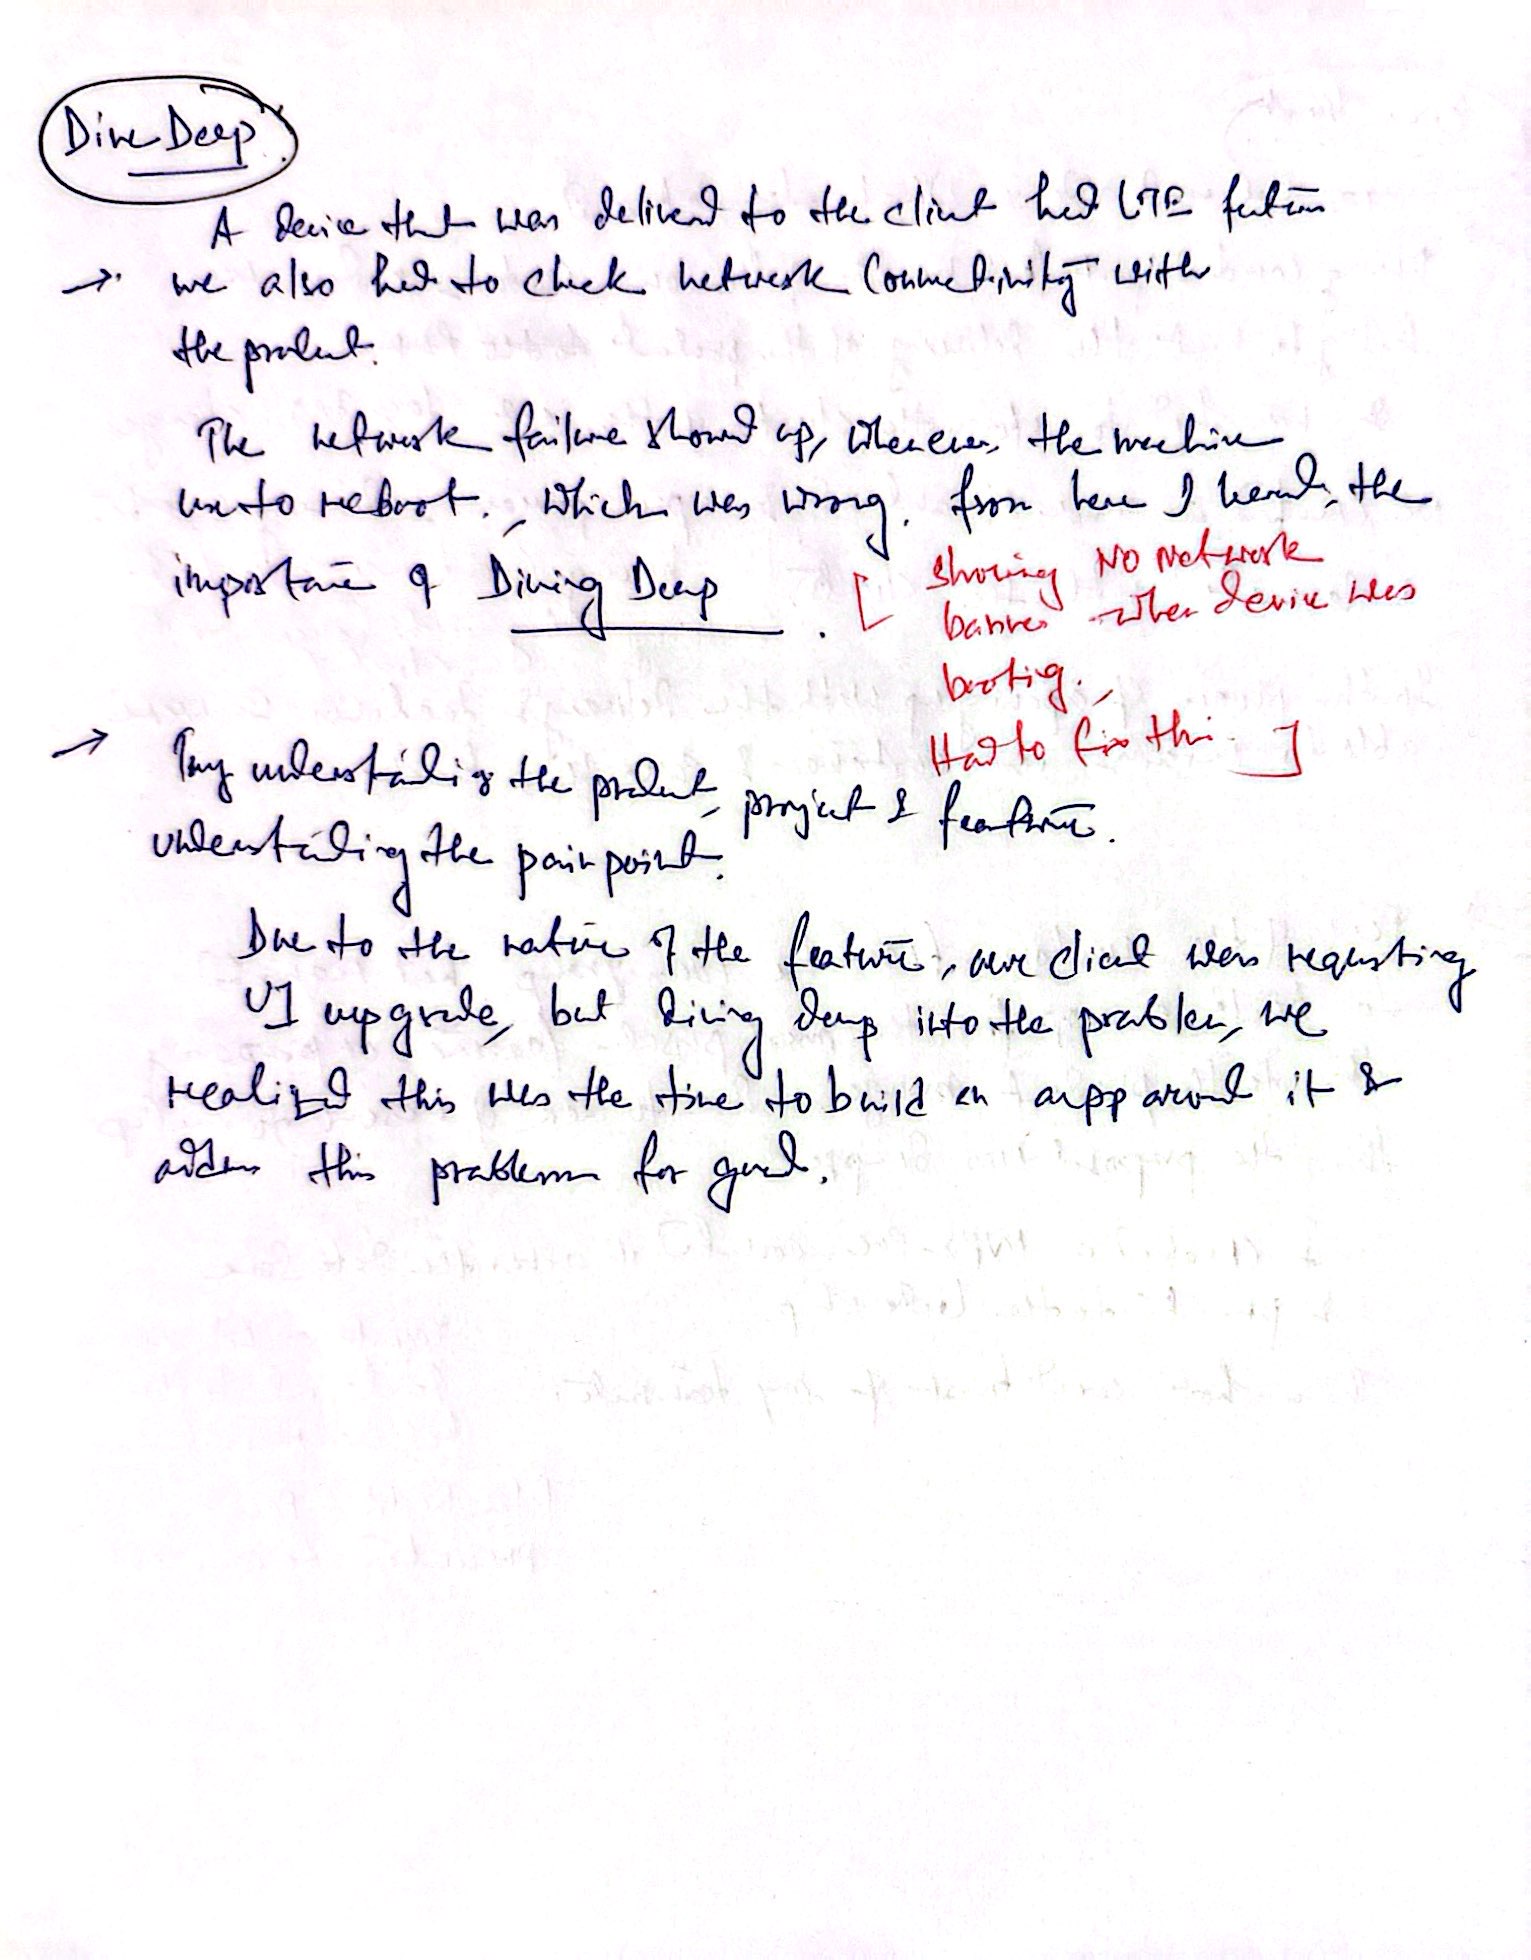 Dive Deep
A device that was delivered to the client had LTE features
→ we also had to check network connectivity with
the product.
The network failure showed up, whenever the machine
use to reboot, which was wrong. from here I learnt the
importance of Diving Deep.
[ showing NO Network
banner when device was
booting.
Had to fix this ]
→ Try understanding the product, project & feature.
understanding the pain point.
Due to the nature of the feature, our client was requesting
UI upgrade, but diving deep into the problem, we
realized this was the time to build an app around it &
address this problem for good.